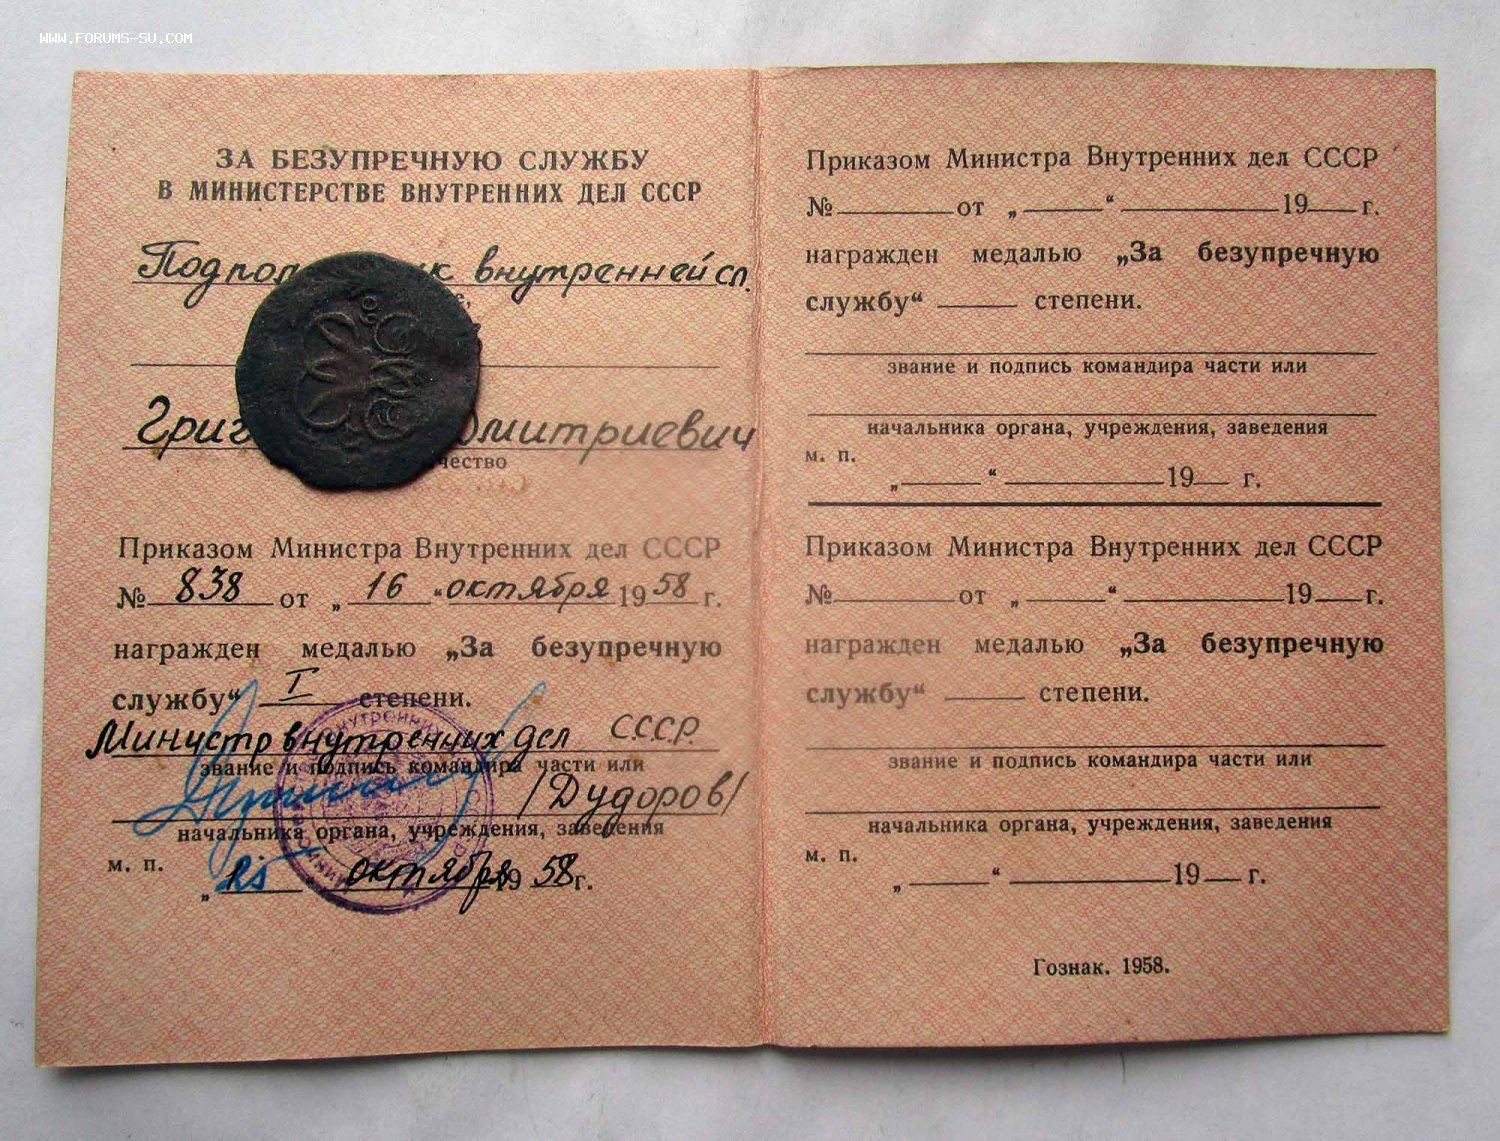 WWW.FORUMS-SU.COM
ЗА БЕЗУПРЕЧНУЮ СЛУЖБУ
В МИНИСТЕРСТВЕ ВНУТРЕННИХ ДЕЛ СССР
внутренней сл.
Дмитриевич
Приказом Министра Внутренних дел СССР
№ 838 от „ 16 “ октября 19 58 г.
награжден медалью „За безупречную
службу“ I степени.
Министр внутренних дел С.С.С.Р.
звание и подпись командира части или
/Дудоров/
начальника органа, учреждения, заведения
м. п.
„ октября 19 58 г.
Приказом Министра Внутренних дел СССР
№ от „ “ 19 г.
награжден медалью „За безупречную
службу“ степени.
звание и подпись командира части или
начальника органа, учреждения, заведения
м. п.
„ “ 19 г.
Приказом Министра Внутренних дел СССР
№ от „ “ 19 г.
награжден медалью „За безупречную
службу“ степени.
звание и подпись командира части или
начальника органа, учреждения, заведения
м. п.
„ “ 19 г.
Гознак. 1958.